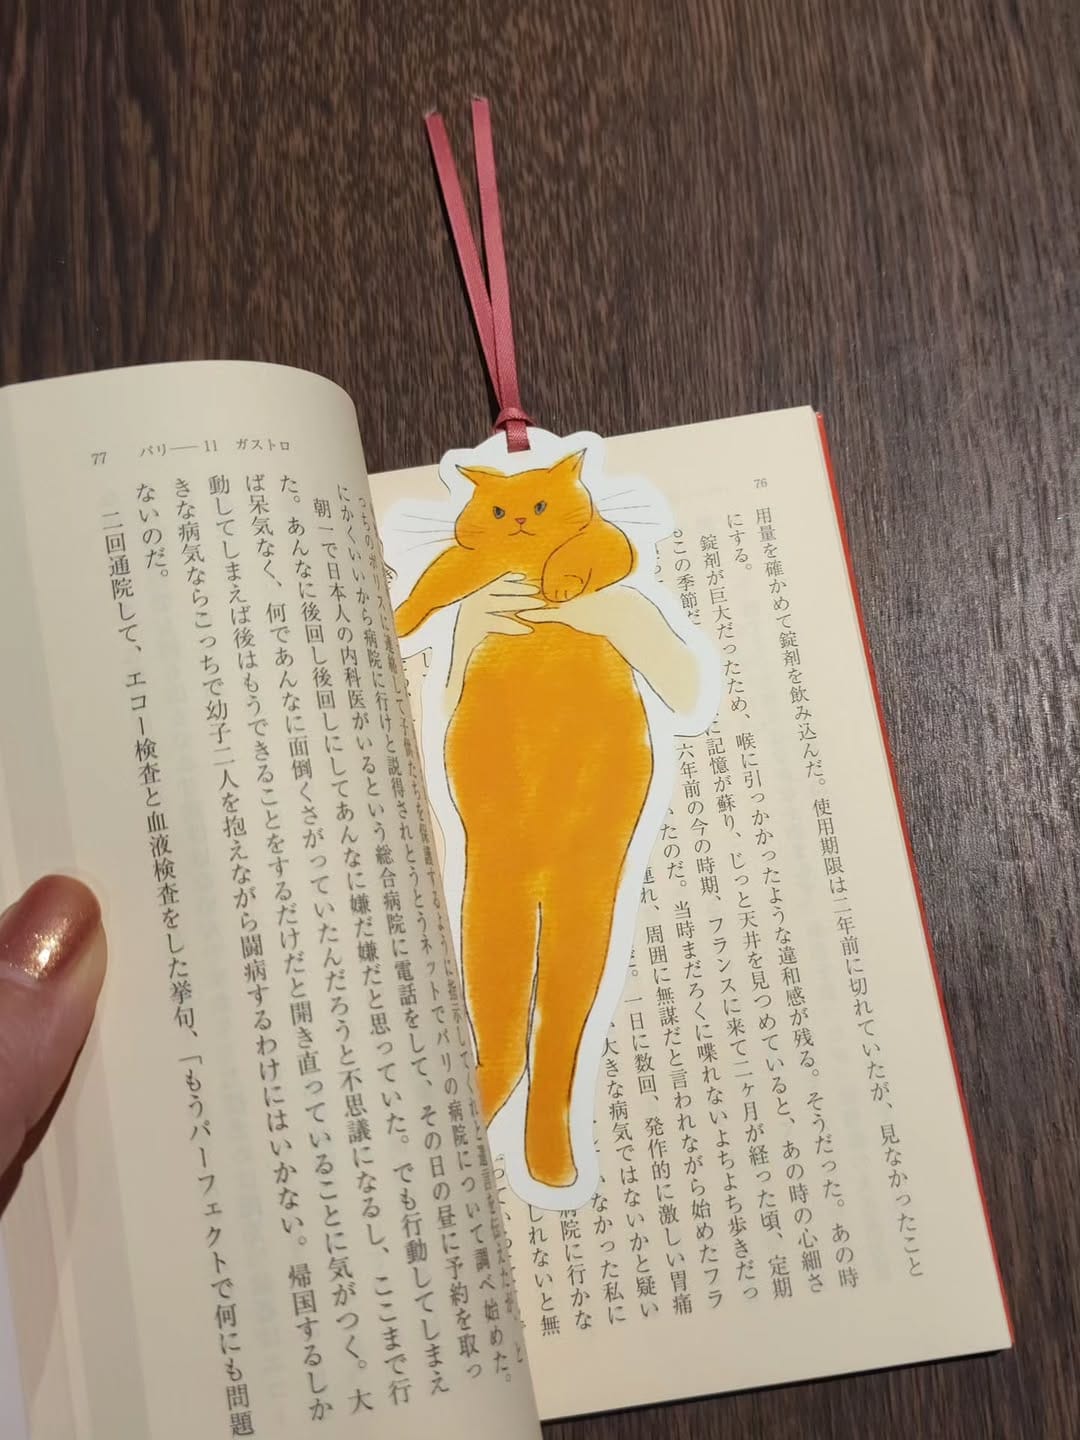 76
用量を確かめて錠剤を飲み込んだ。使用期限は二年前に切れていたが、見なかったこと
にする。
錠剤が巨大だったため、喉に引っかかったような違和感が残る。そうだった。あの時
もこの季節だ
に記憶が蘇り、じっと天井を見つめていると、あの時の心細さ
六年前の今の時期、フランスに来て二ヶ月が経った頃、定期
いたのだ。当時まだろくに喋れないよちよち歩きだっ
連れ、周囲に無謀だと言われながら始めたフラ
だ。一日に数回、発作的に激しい胃痛
大きな病気ではないかと疑い
いなかった私に
病院に行かな
しれないと無
77 パリ──11 ガストロ
っちのポリスに連絡して子供たちを保護するように指示してくれと遺言を伝えたが、と
にかくいいから病院に行けと説得されとうとうネットでパリの病院について調べ始めた。
朝一で日本人の内科医がいるという総合病院に電話をして、その日の昼に予約を取っ
た。あんなに後回し後回しにしてあんなに嫌だ嫌だと思っていた。でも行動してしまえ
ば呆気なく、何であんなに面倒くさがっていたんだろうと不思議になるし、ここまで行
動してしまえば後はもうできることをするだけだと開き直っていることに気がつく。大
きな病気ならこっちで幼子二人を抱えながら闘病するわけにはいかない。帰国するしか
ないのだ。
二回通院して、エコー検査と血液検査をした挙句、「もうパーフェクトで何にも問題